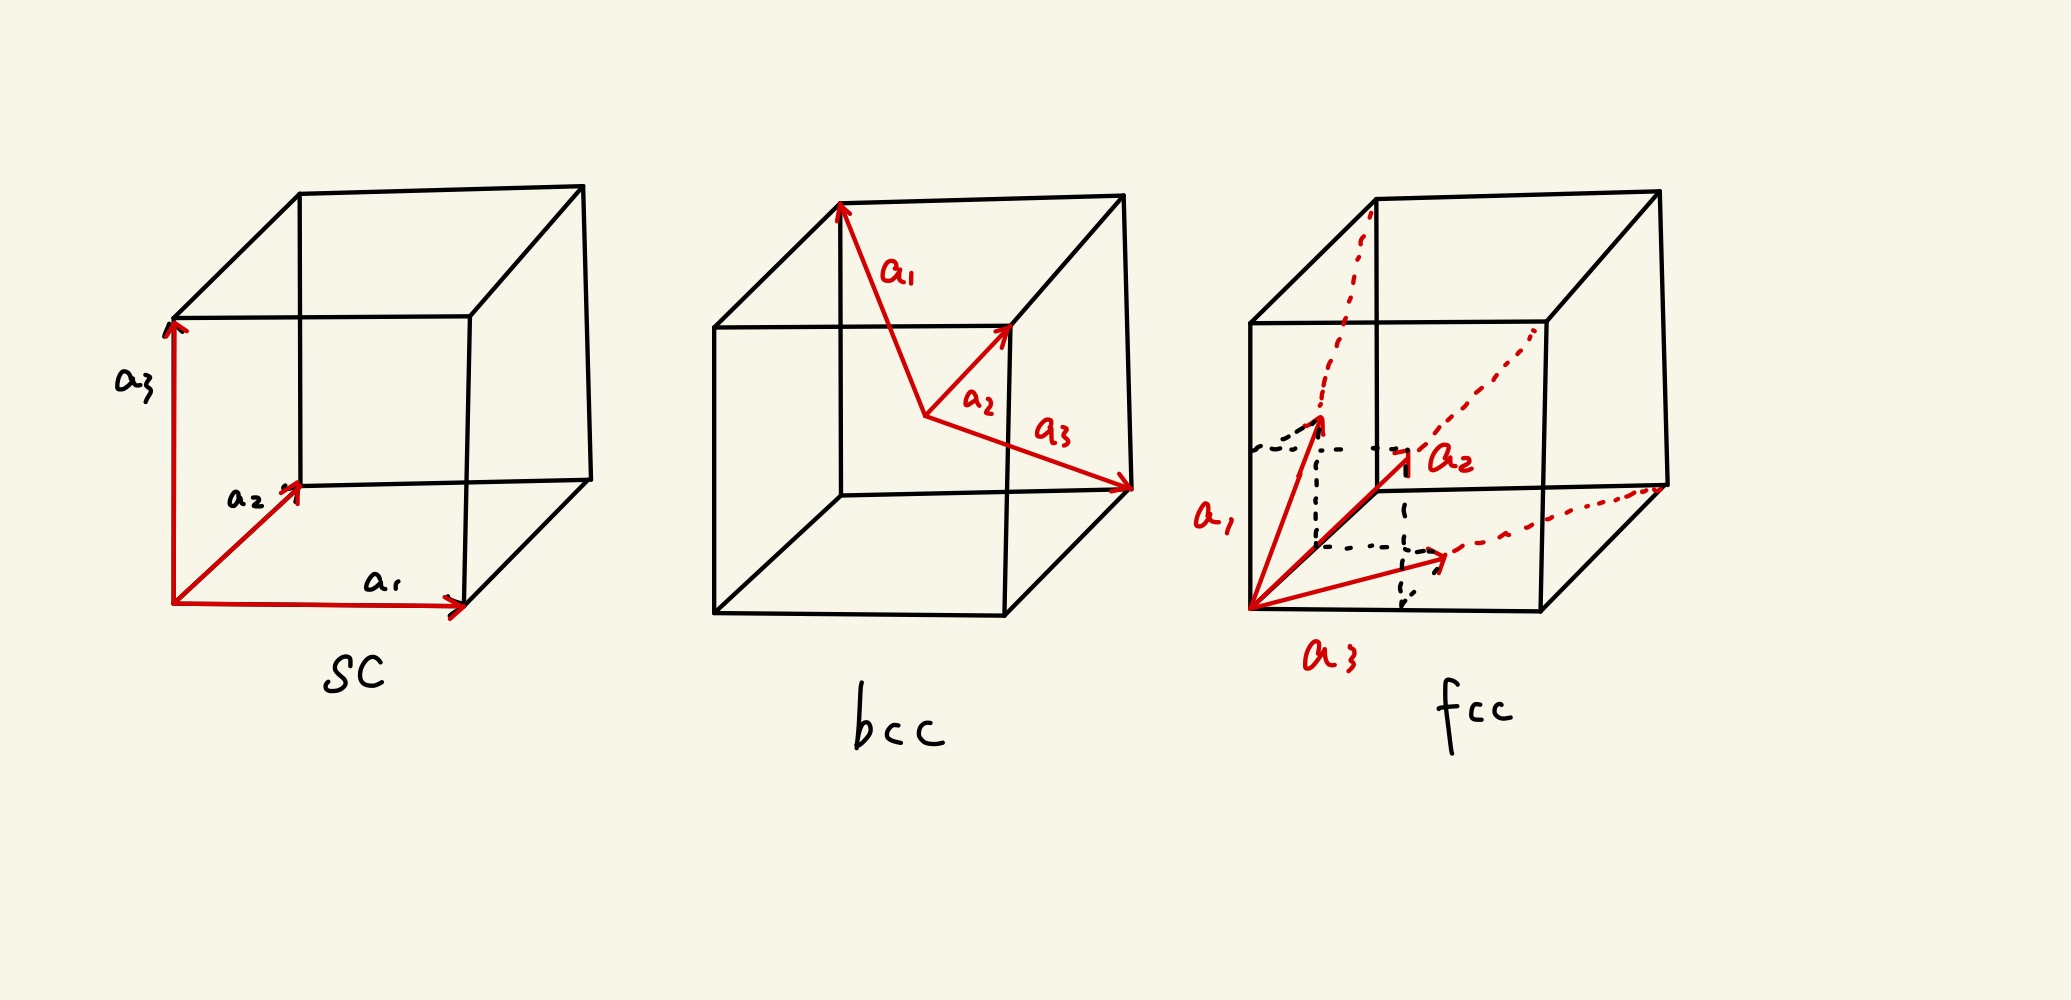 a3
a2
a1
sc
a1
a2
a3
bcc
a1
a2
a3
fcc